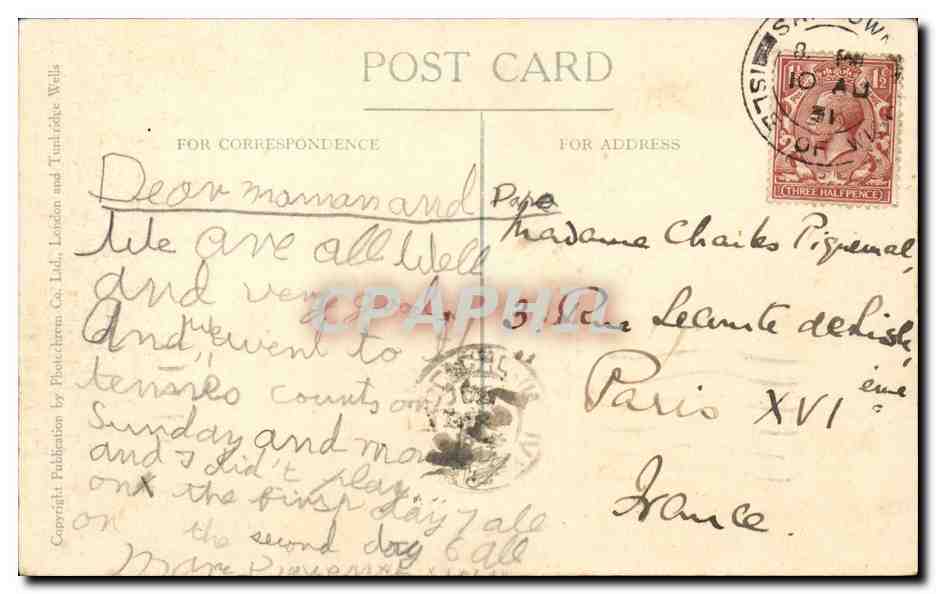 POST CARD
FOR CORRESPONDENCE
FOR ADDRESS
Copyright Publication by Photochrom Co. Ltd., London and Tunbridge Wells
Dear maman and Papa
We are all well
and very
and we went to
tennes counts on
Sunday and
and I did't play
on the day 7 all
on the second day 6 all
Madame Charles Piquemal,
5 Rue Leconte de Lisle,
Paris XVI ème
France
CPAPHIL
THREE HALFPENCE
1½
1½
10 AU
31
ISLE OF